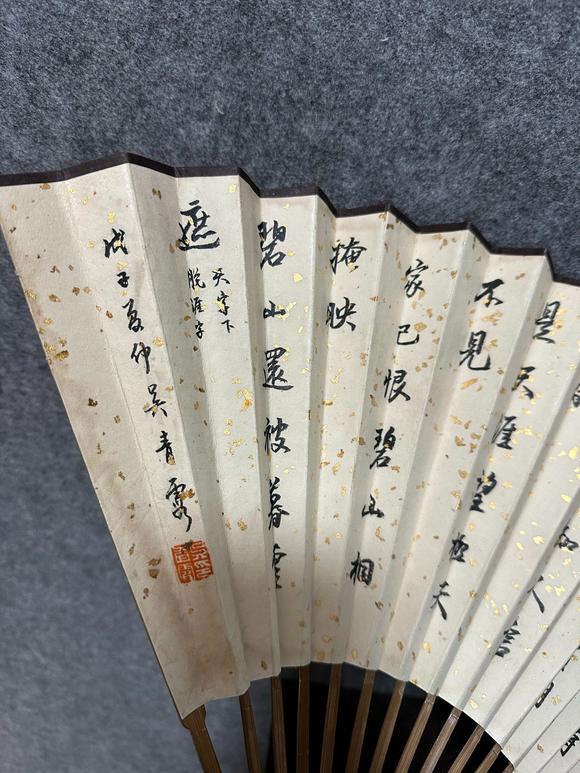 人言
是天涯望極天
不見
家已恨碧山相
掩映
碧山還被暮雲
遮
天字下
脫涯字
戊子夏仲吳青霞